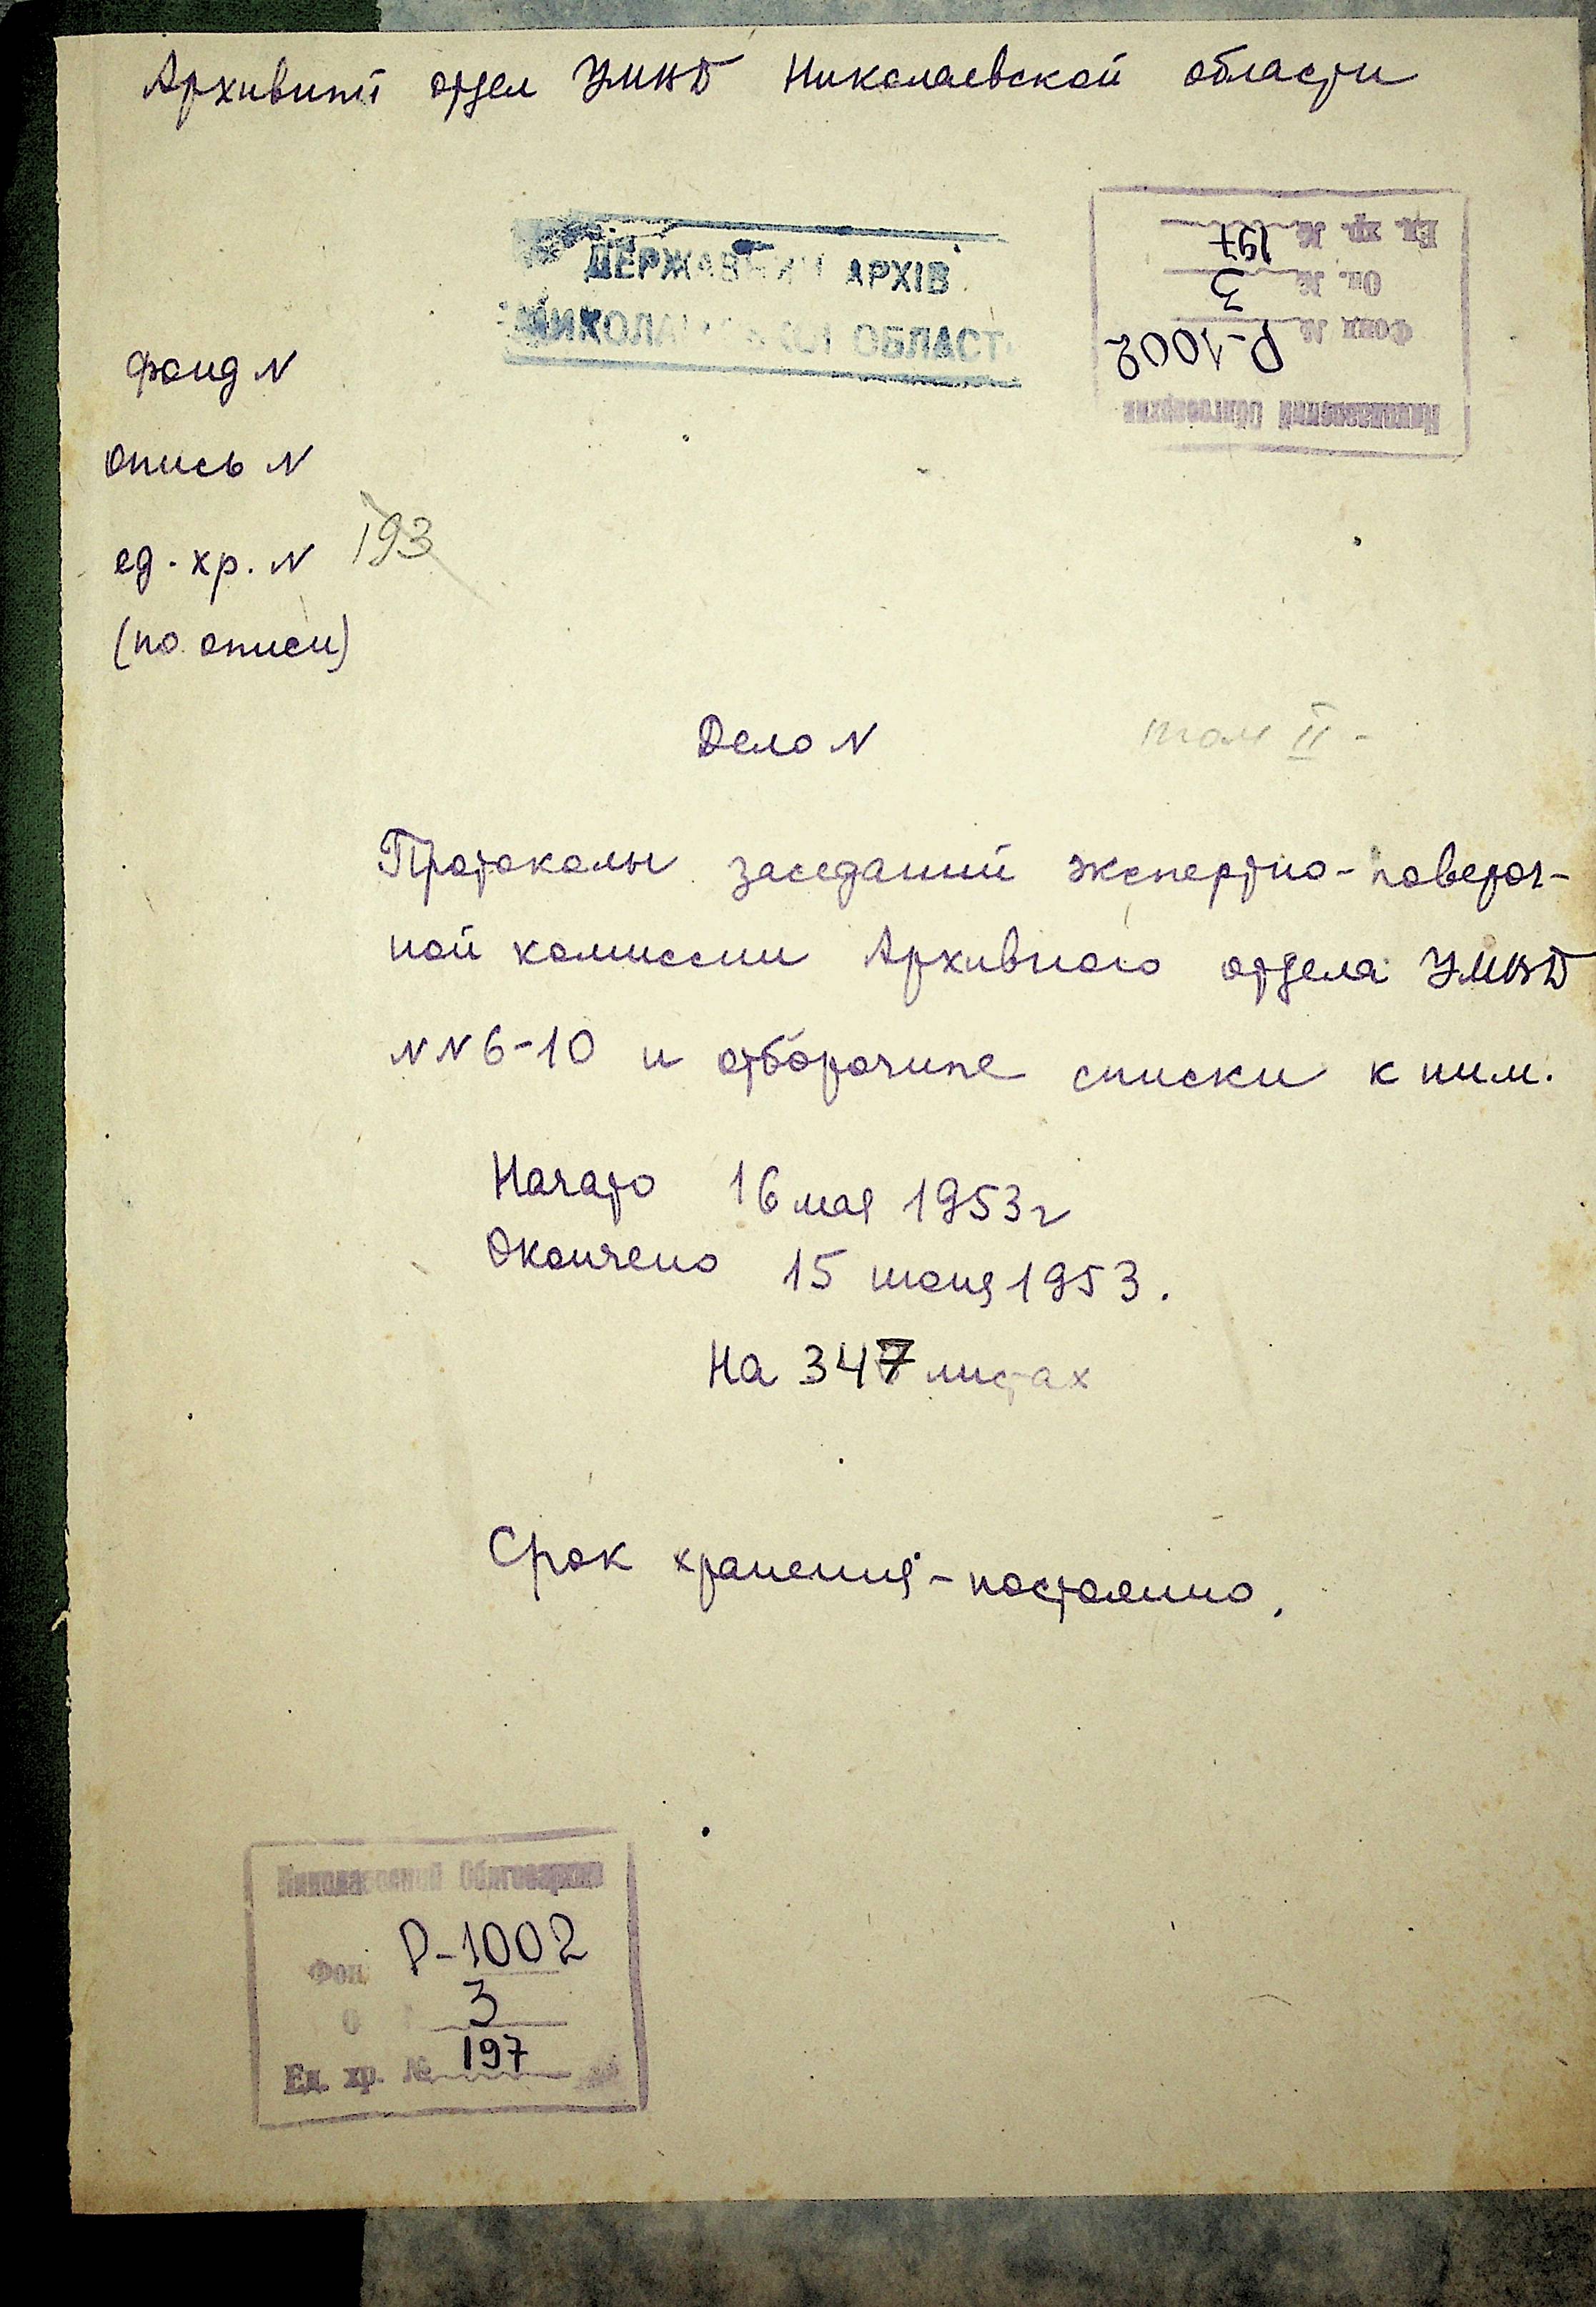 Архивный отдел УМВД Николаевской области
ДЕРЖАВНИЙ АРХІВ
МИКОЛАЇВСЬКОЇ ОБЛАСТІ
Ед. хр. № 197
Оп. № 3
Фонд № Р-1002
Николаевский Облгосархив
фонд N
опись N
ед. хр. N 193
(по описи)
Дело N
том II -
Протоколы заседаний экспертно-повероч-
ной комиссии Архивного отдела УМВД
NN 6-10 и отборочные списки к ним.
Начато 16 мая 1953 г
Окончено 15 июня 1953.
На 347 листах
Срок хранения - постоянно.
Николаевский Облгосархив
Фон Р-1002
О 3
Ед. хр. № 197